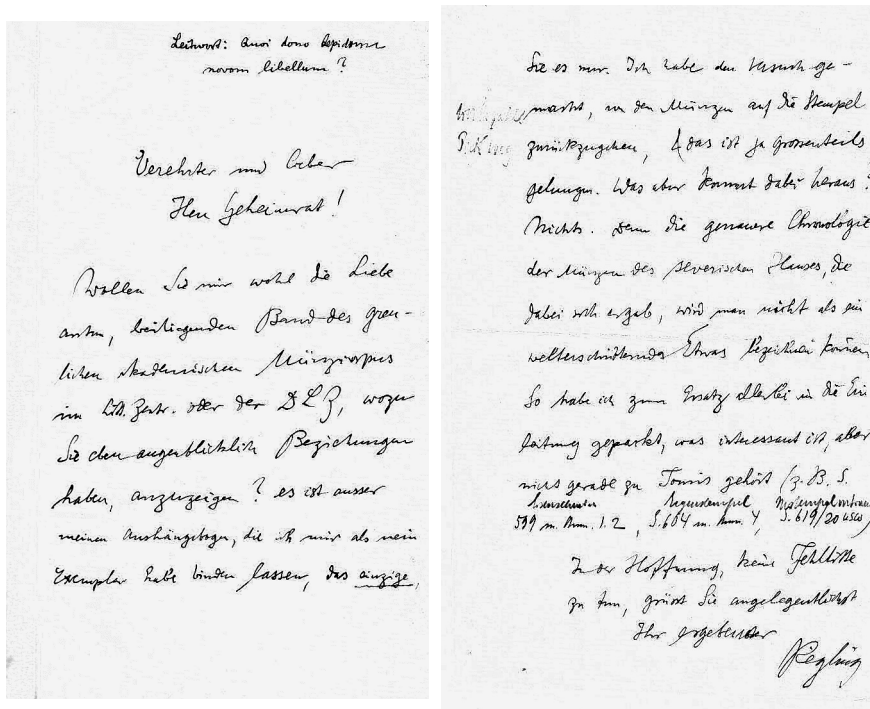 Leitwort: Quoi dono lepidum
novom libellum?
Verehrter und lieber
Herr Geheimrat!
Wollen Sie mir wohl die Liebe
antun, beiliegenden Band des greu-
lichen akademischen Münzcorpus
im Litt. Zentr. oder der DLZ, wozu
Sie eben augenblicklich Beziehungen
haben, anzuzeigen? es ist ausser
meinen Aushängebogen, die ich mir als mein
Exemplar habe binden lassen, das einzige,
Sie es nur. Ich habe den Versuch ge-
macht, von den Münzen auf die Stempel
zurückzugehen, & das ist ja grossenteils
gelungen. Was aber kommt dabei heraus?
Nichts. Denn die genauere Chronologie
der Münzen des severischen Hauses, die
dabei sich ergab, wird man nicht als ein
welterschütterndes Etwas bezeichnen können.
So habe ich zum Ersatz allerlei in die Ein
leitung gepackt, was interessant ist, aber
nicht gerade zu Tomis gehört (z. B. S.
599 m. Anm. 1. 2, S. 604 m. Anm. 4, S. 619/20 usw)
In der Hoffnung, keine Fehlbitte
zu tun, grüsst Sie angelegentlichst
Ihr ergebenster
Regling